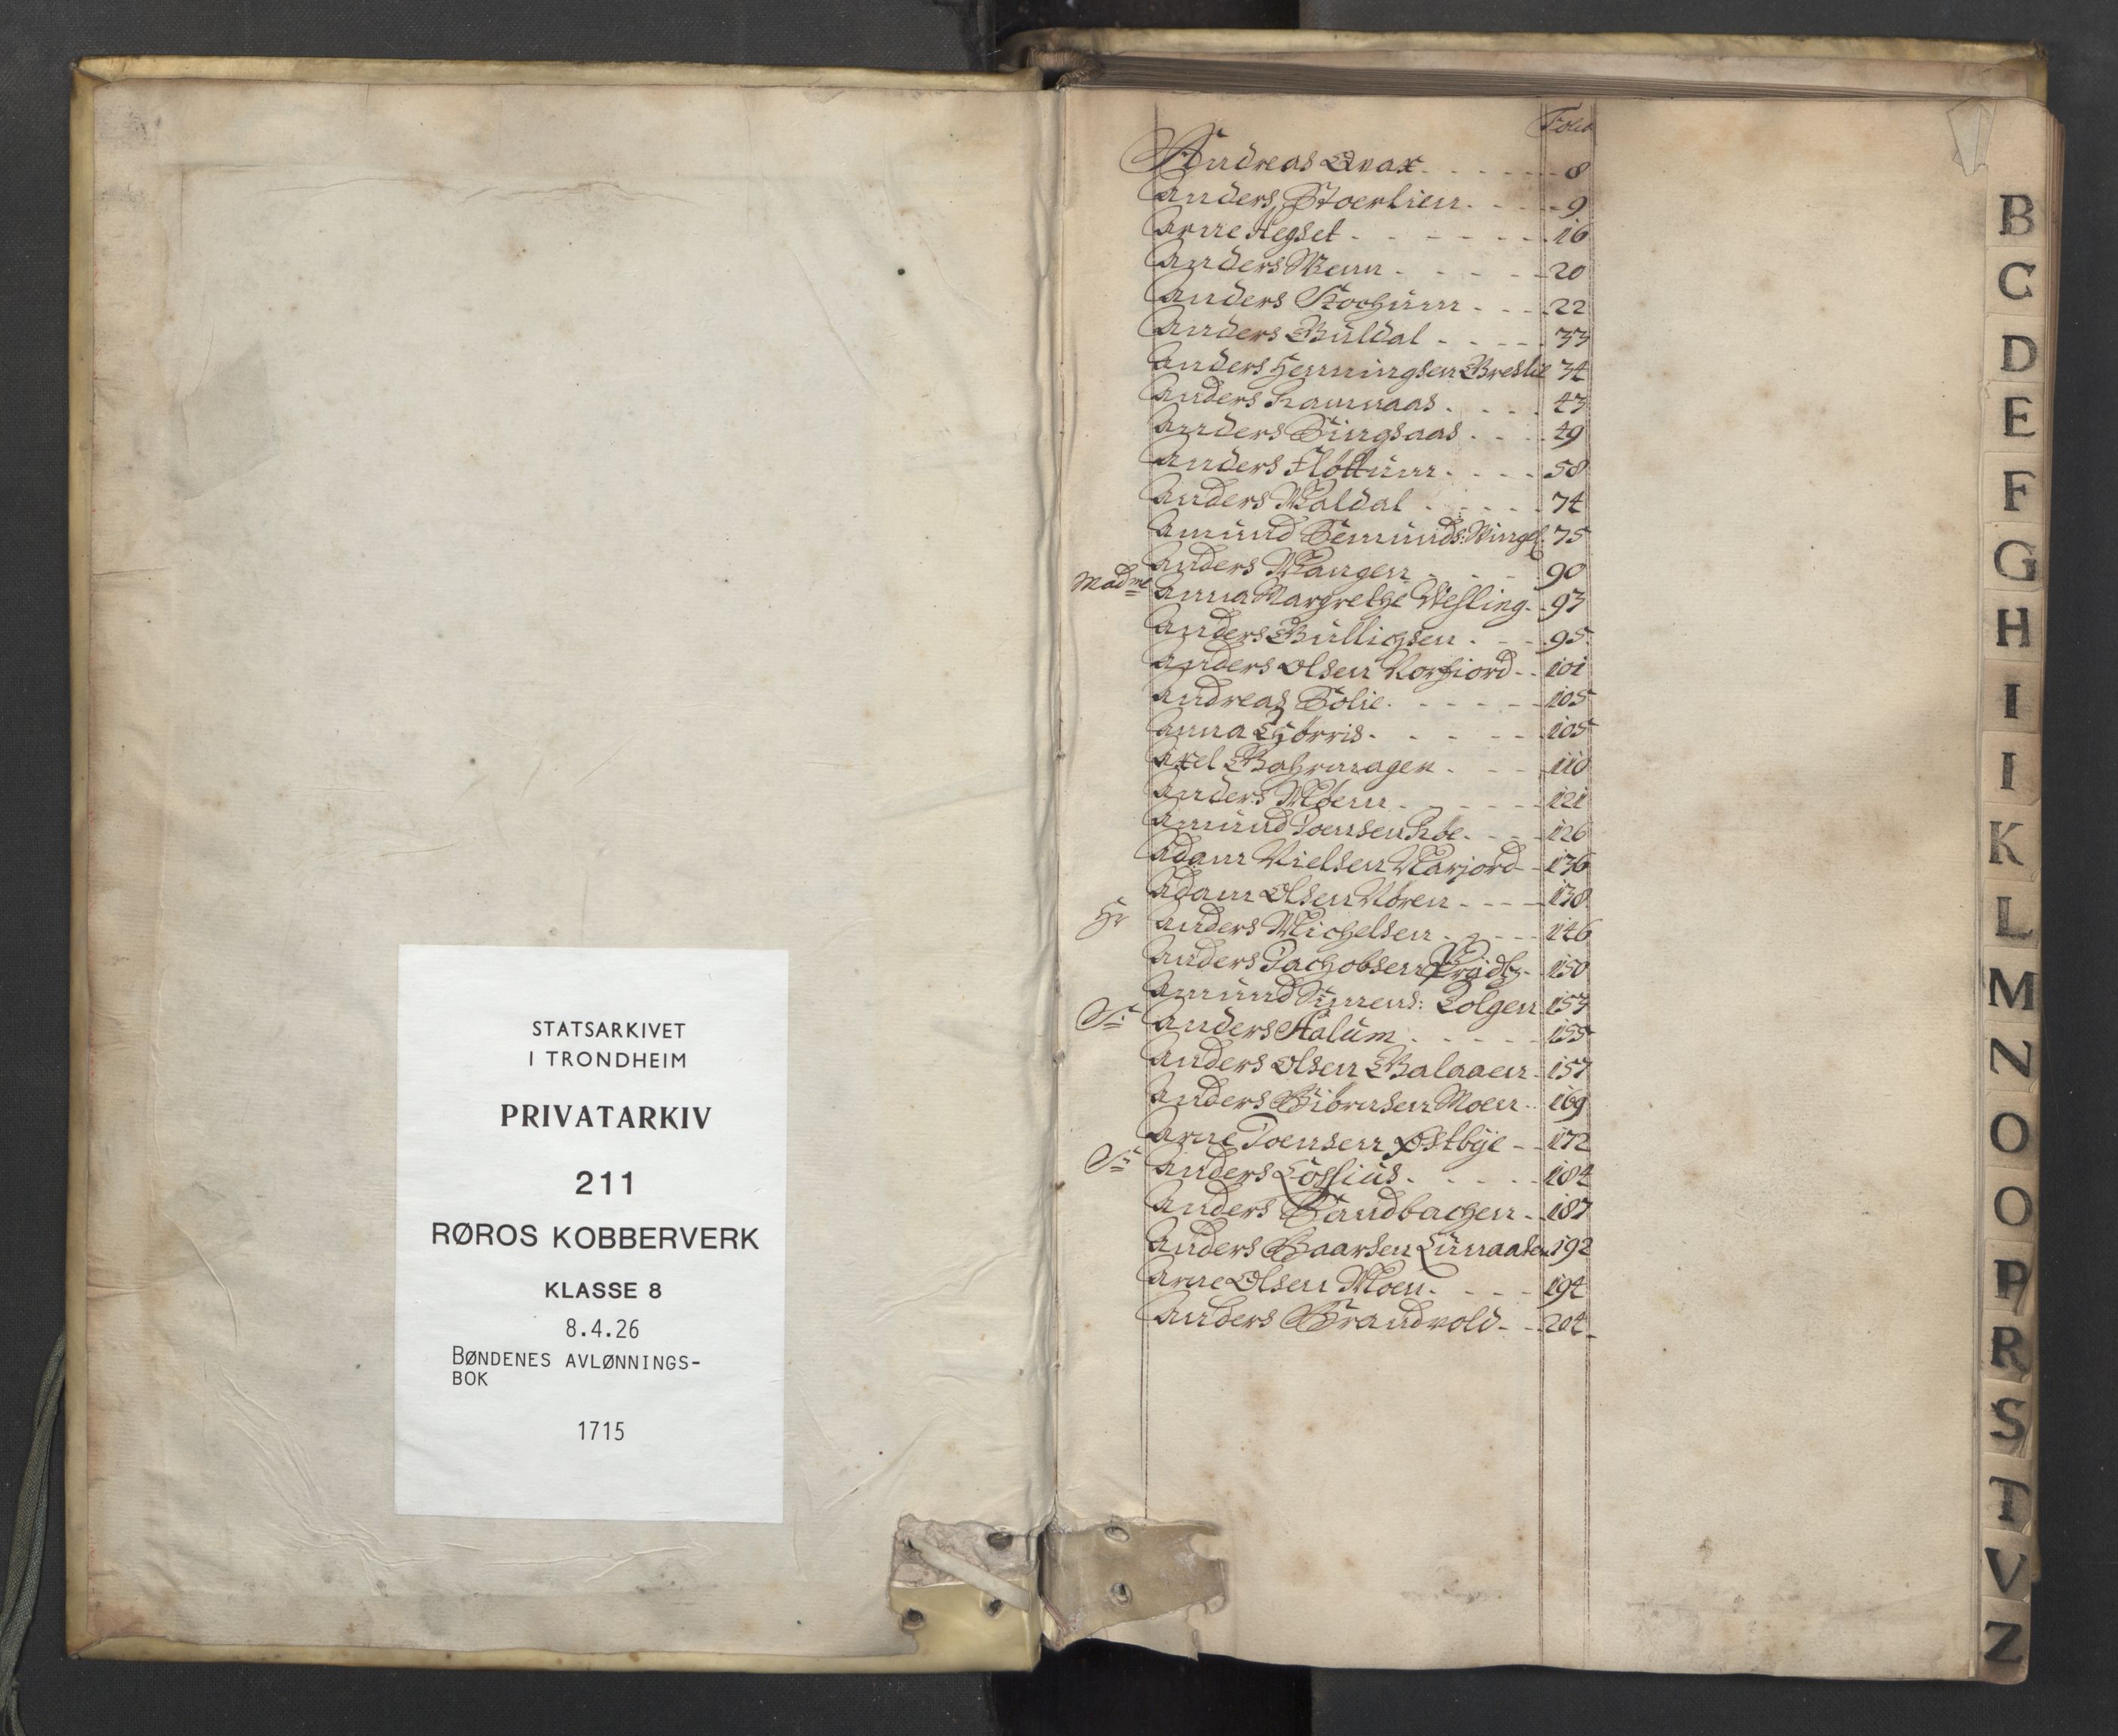 STATSARKIVET
I TRONDHEIM
PRIVATARKIV
211
RØROS KOBBERVERK
KLASSE 8
8.4.26
BØNDENES AVLØNNINGS-
BOK
1715
Folio
Andreas Qvax 8
Anders Stoerlien 9
Arne Hegset 16
Anders Wenn 20
Anders 22
Anders Buldal 33
Anders Henningsen Breslie 34
Anders Ramnaas 43
Anders Singsaas 49
Anders Flöttum 58
Anders Waldal 74
Amund Semunds: Wingel 75
Anders Wangen 90
Madme Anna Margrethe Wesling 93
Anders Bullichsen 95
Anders Olsen Norfiord 101
Andreas Solie 105
Anna 105
Axel Bahrnager 110
Anders Möen 121
Amund Joensen Röe 126
Adam Nielsen Narjord 136
Adam Olsen Nören 138
Hr Anders Michelsen 146
Anders Jachobsen 150
Amund Simens: Tolgen 153
Sr Anders Aalum 155
Anders Olsen Balaaen 157
Anders Biörnsen Moen 169
Arne Joensen Östbye 172
Sr Anders Lossius 184
Anders Sandbachen 187
Anders Baarsen Lunaasen 192
Arne Olsen Moen 194
Anders Brandvold 204
B
C
D
E
F
G
H
I
I
K
L
M
N
O
O
P
R
S
T
V
Z